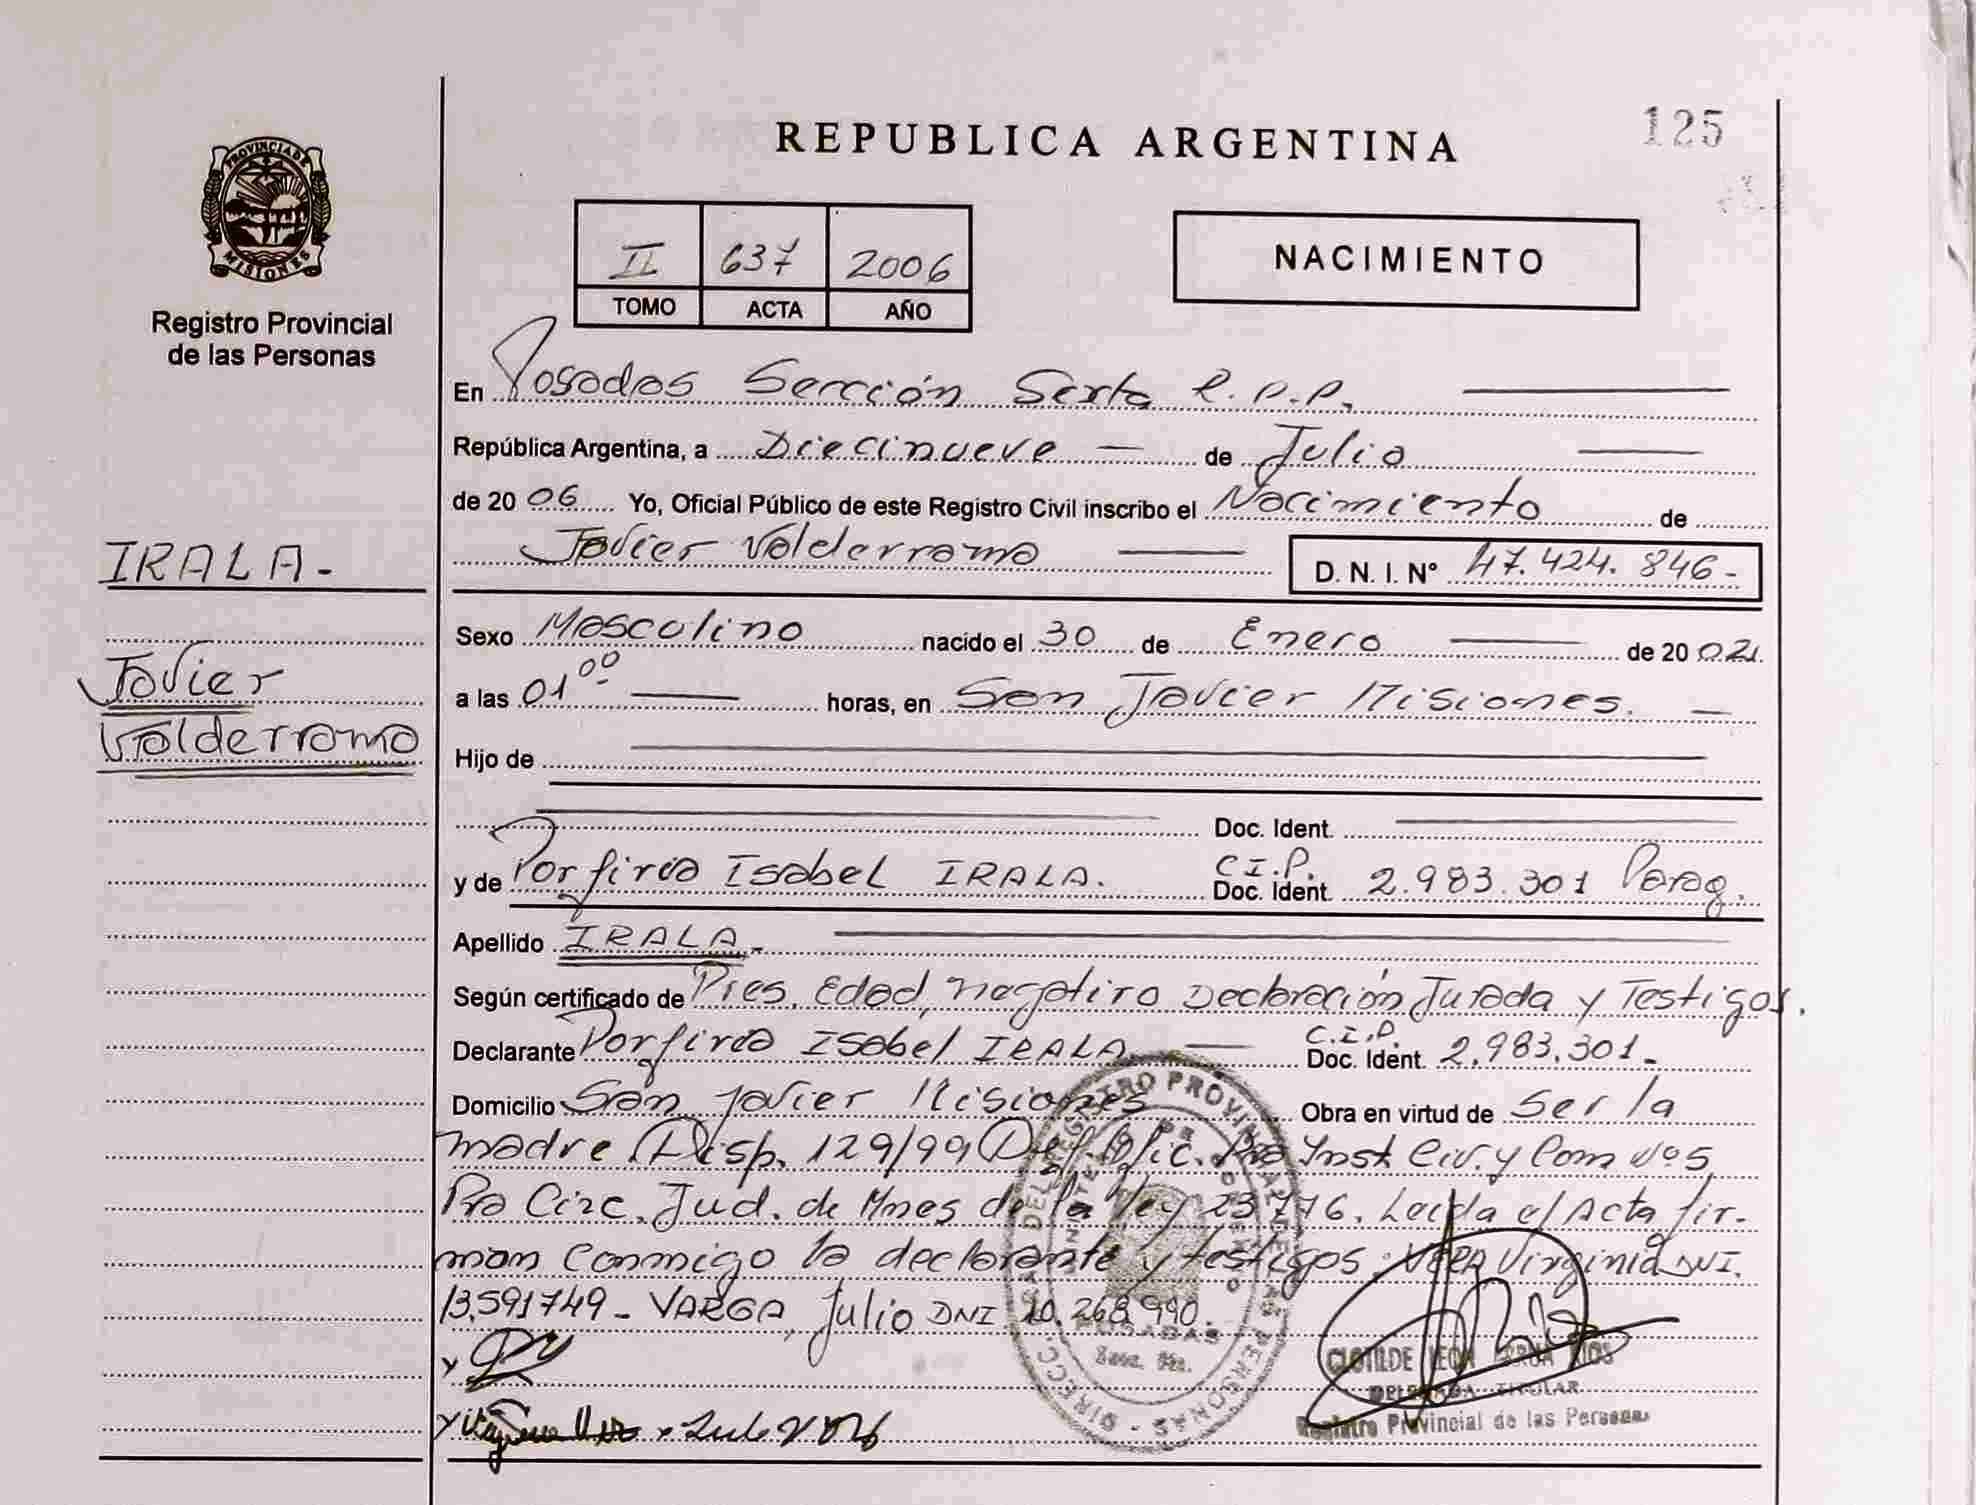 REPUBLICA ARGENTINA
125
PROVINCIA DE MISIONES
Registro Provincial
de las Personas
II 637 2006
TOMO ACTA AÑO
NACIMIENTO
En Posadas Sección Sexta R.P.P.
República Argentina, a Diecinueve de Julio
de 20 06 Yo, Oficial Público de este Registro Civil inscribo el Nacimiento de
Javier Valderrama D. N. I. N° 47.424.846-
IRALA-
Javier
Valderrama
Sexo Masculino nacido el 30 de Enero de 20 02
a las 01 00 horas, en San Javier Misiones.
Hijo de
Doc. Ident.
y de Porfiria Isabel IRALA. C.I.P. Doc. Ident. 2.983.301 Parag.
Apellido IRALA-
Según certificado de Pres. Edad, negativo Declaración Jurada y Testigos.
Declarante Porfiria Isabel IRALA C.I.P. Doc. Ident. 2.983.301-
Domicilio San Javier Misiones Obra en virtud de Ser la
madre Disp. 129/99 Inst. Civ. y Com Nº5
Circ. Jud. de Mnes de la Ley 23776. Leida el Acta fir-
man conmigo la declarante y testigos VERA Virginia DNI.
13.591749- VARGA, Julio DNI 10.268.990.
DIRECC. DEL REGISTRO PROVINCIAL DE LAS PERSONAS
POSADAS
Secc. 6ta.
CLOTILDE LEON RIOS
DELEGADA TITULAR
Registro Provincial de las Personas